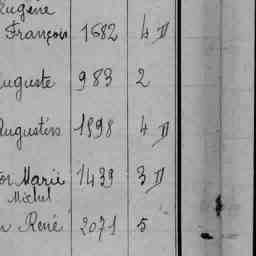 Eugène
François 1682 4 D
Auguste 983 2
Augustin 1898 4 D
Marie 1439 3 D
Michel
René 2071 5